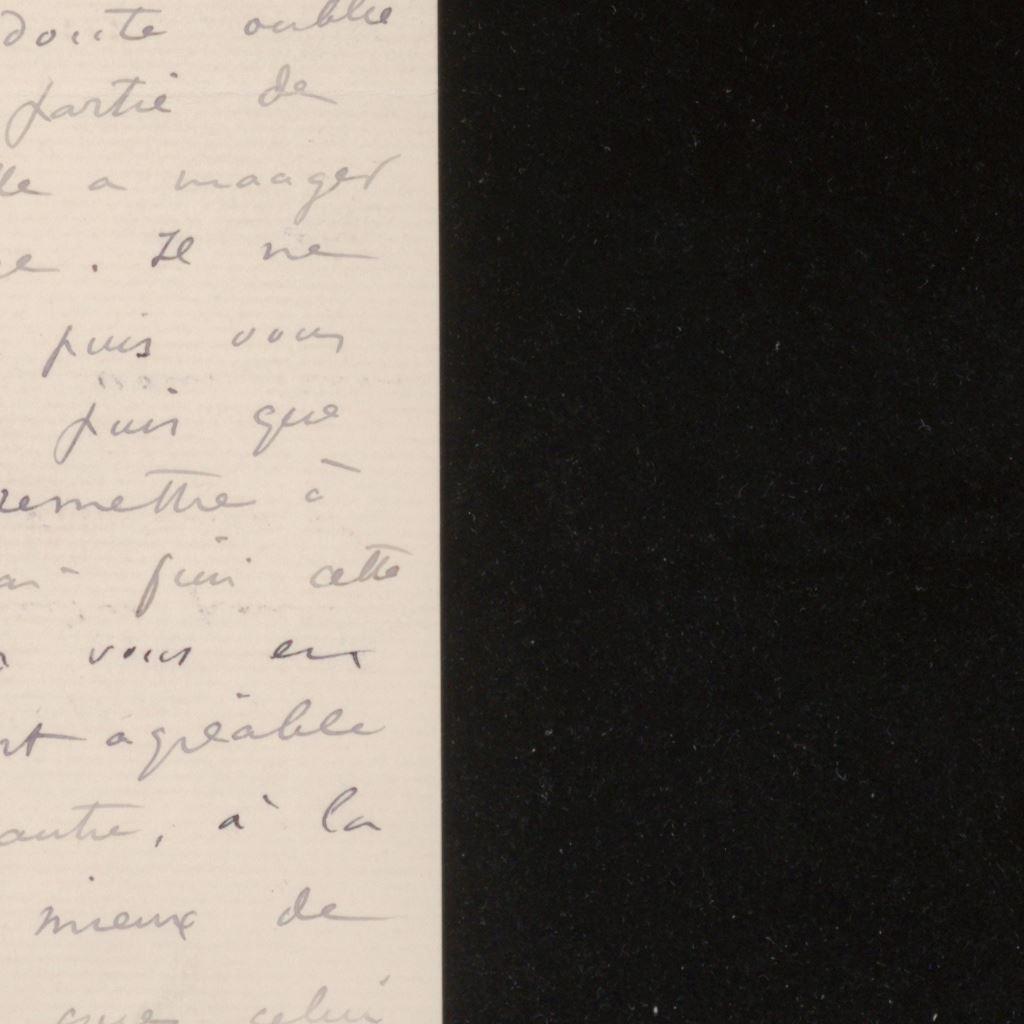 doute oublié
partie de
lle a manger
. Il ne
puis vous
puis que
remettre à
fini cette
vous en
agréable
autre, à la
mieux de
que celui